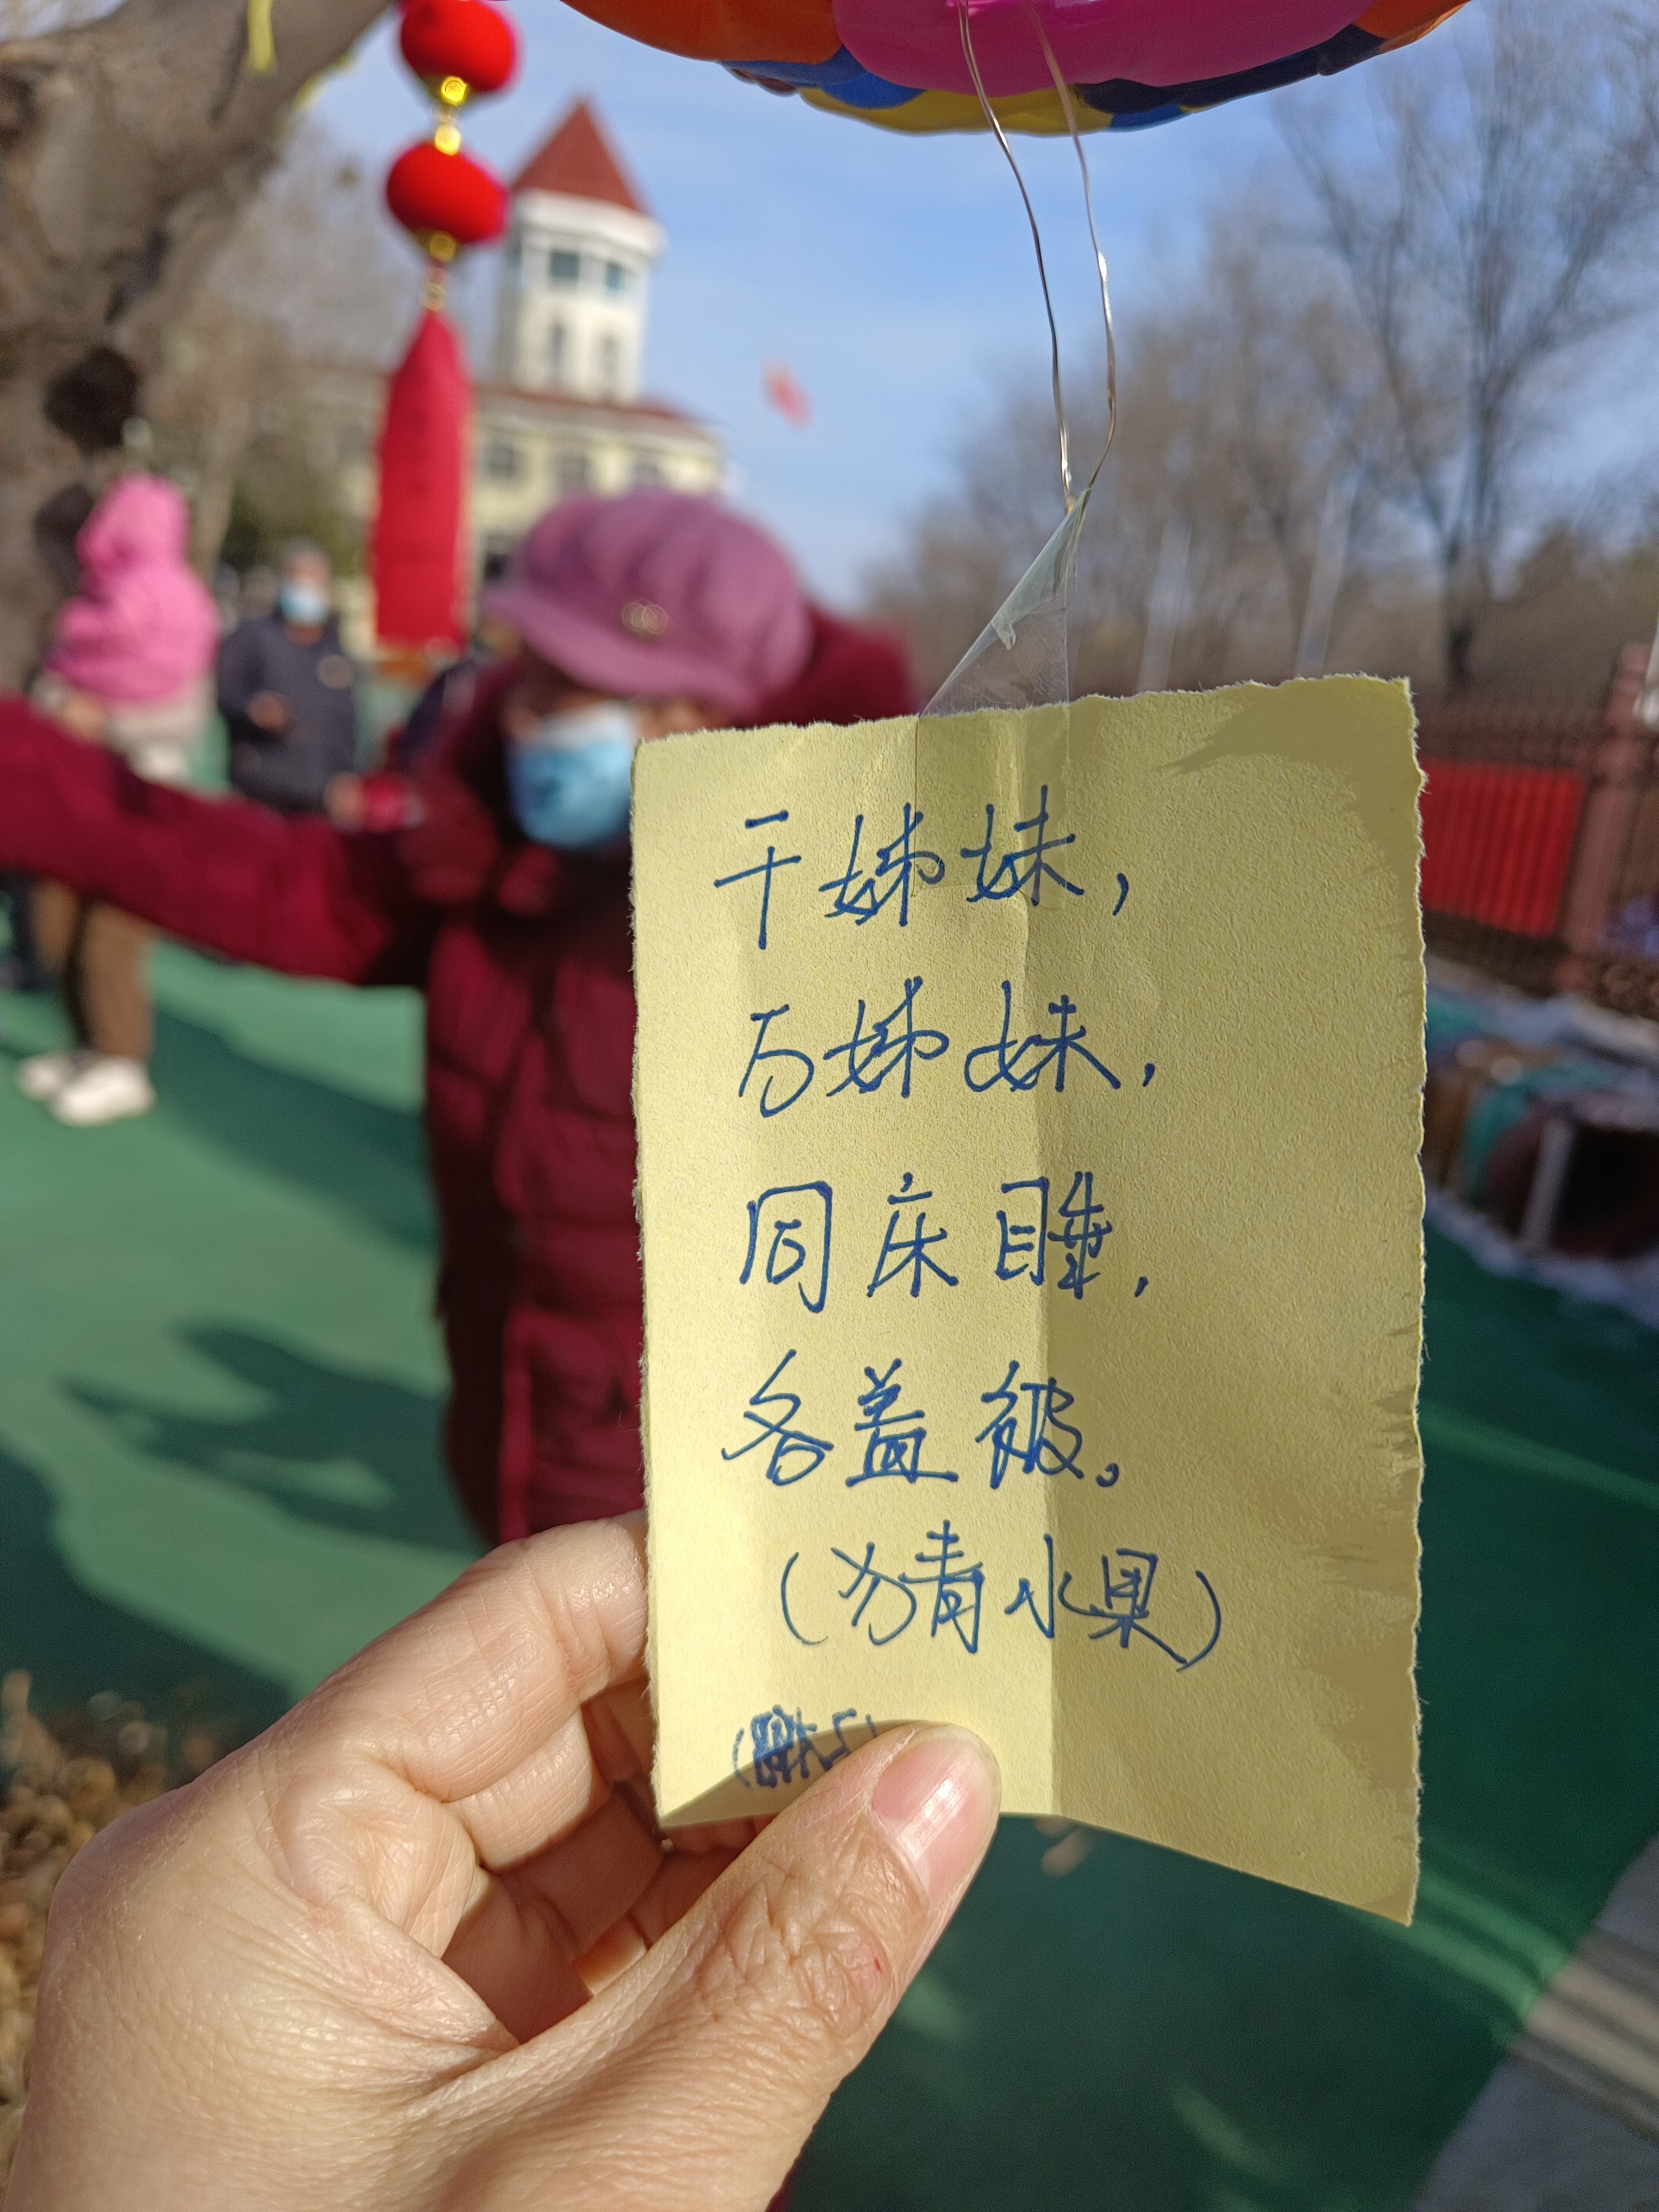 千姊妹,
万姊妹,
同床睡,
各盖被。
(为青水果)